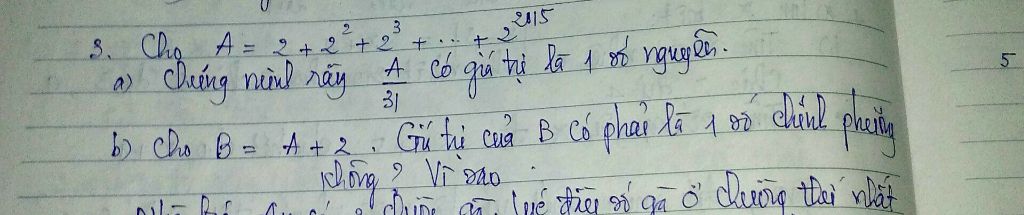 3. Cho A = 2 + 2² + 2³ + ... + 2²⁰¹⁵
a) Chứng minh rằng A/31 có giá trị là 1 số nguyên.
5
b) Cho B = A + 2. Giá trị của B có phải là 1 số chính phương
không? Vì sao
số gà ở chuồng thứ nhất